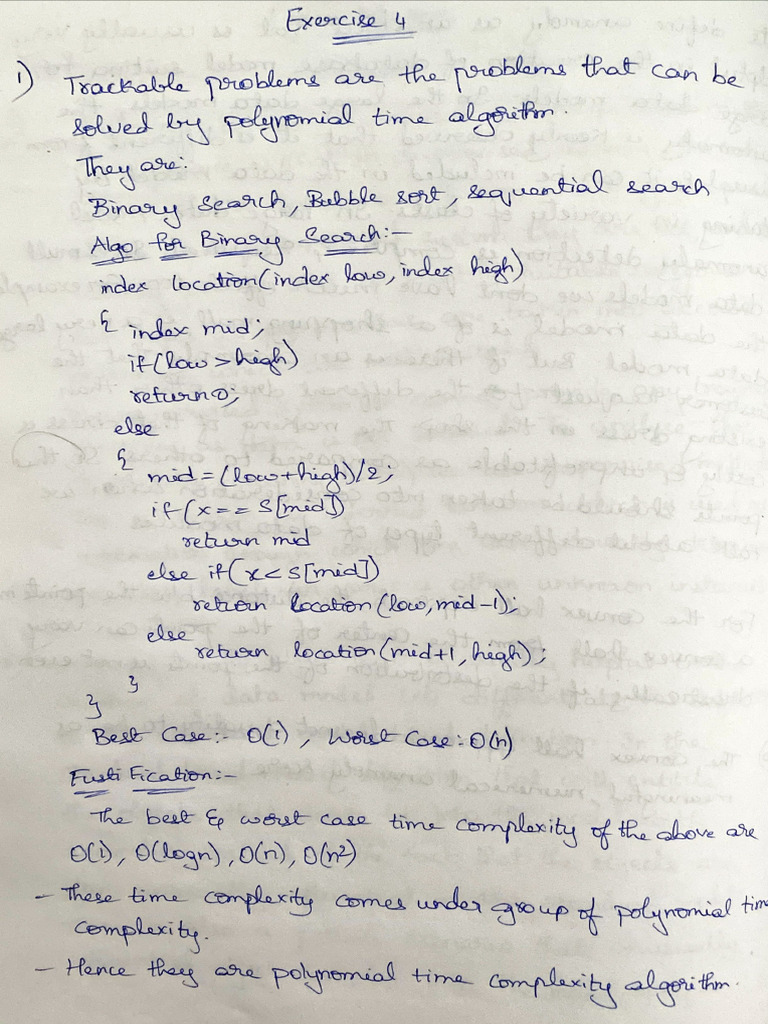 Exercise 4
1) Trackable problems are the problems that can be
solved by polynomial time algorithm.
They are:
Binary search, Bubble sort, sequential search
Algo for Binary Search:-
index location(index low, index high)
{ index mid;
if(low > high)
return 0;
else
{
mid = (low + high)/2;
if (x == S[mid])
return mid
else if(x < S[mid])
return location(low, mid-1);
else
return location(mid+1, high);
}
}
Best Case:- O(1), Worst Case: O(n)
Justi Fication:-
The best & worst case time complexity of the above are
O(1), O(logn), O(n), O(n²)
- These time complexity comes under group of polynomial time
complexity.
- Hence they are polynomial time complexity algorithm.